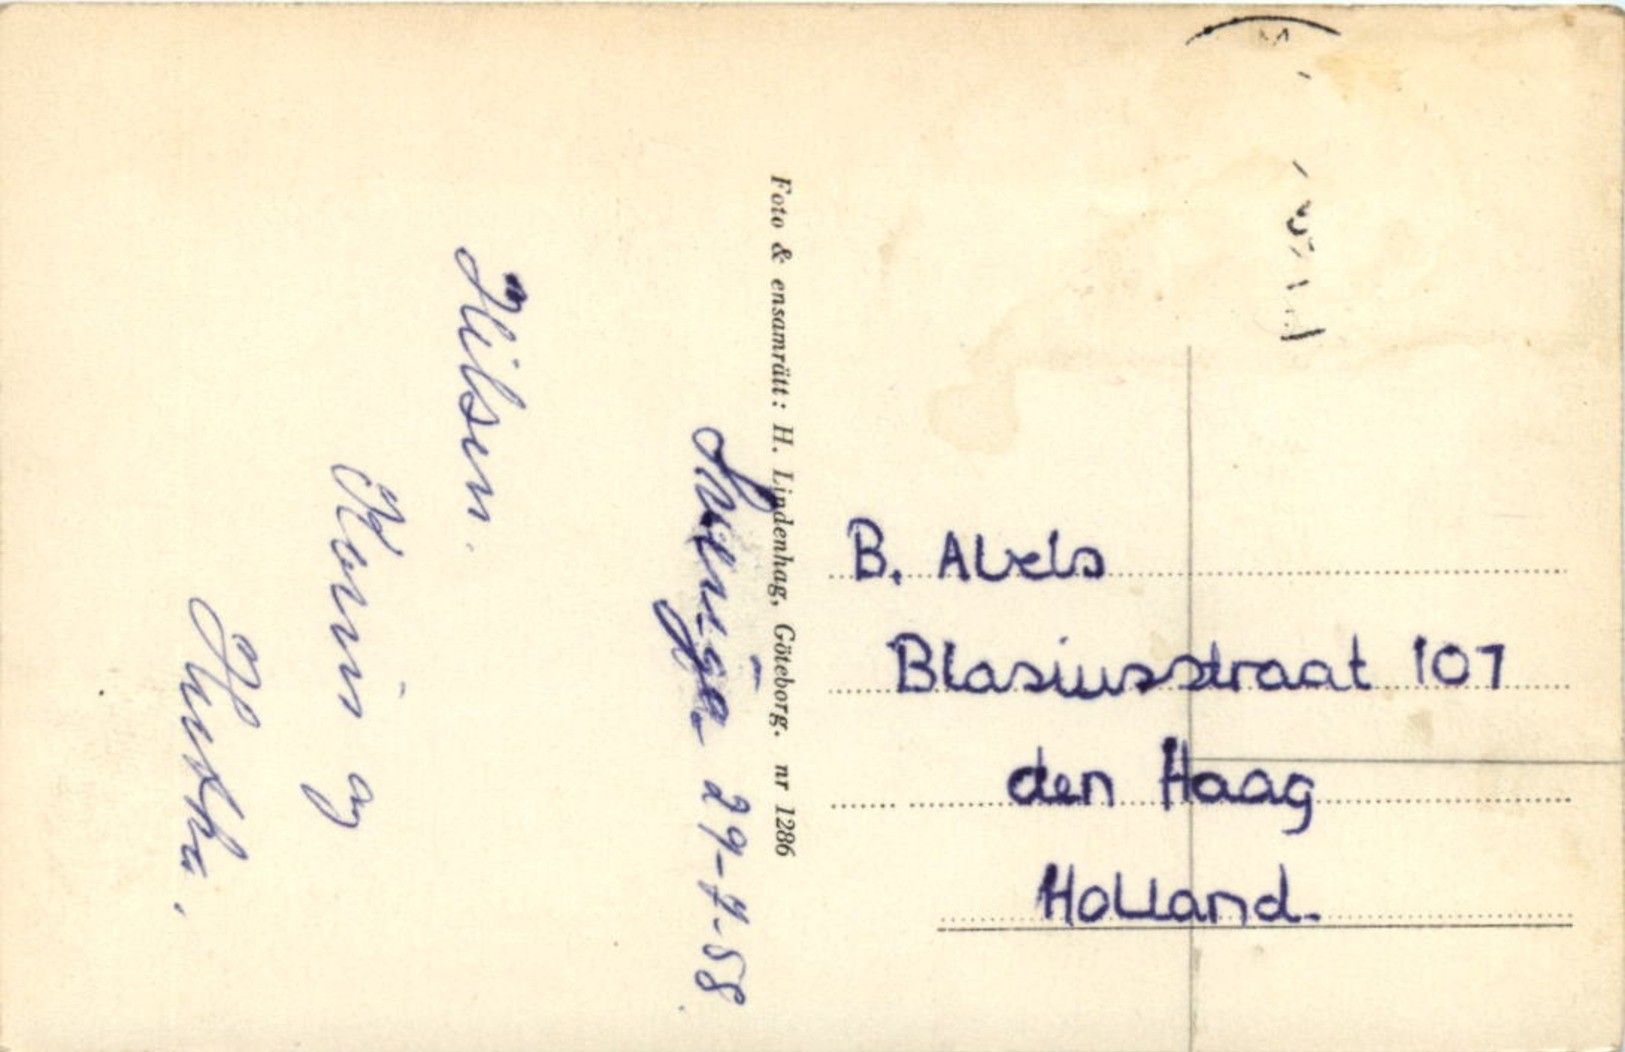 29-7-58
Hilsen.
og
Foto & ensamrätt: H. Lindenhag, Göteborg. nr 1286
B. Abels
Blasiusstraat 107
den Haag
Holland.